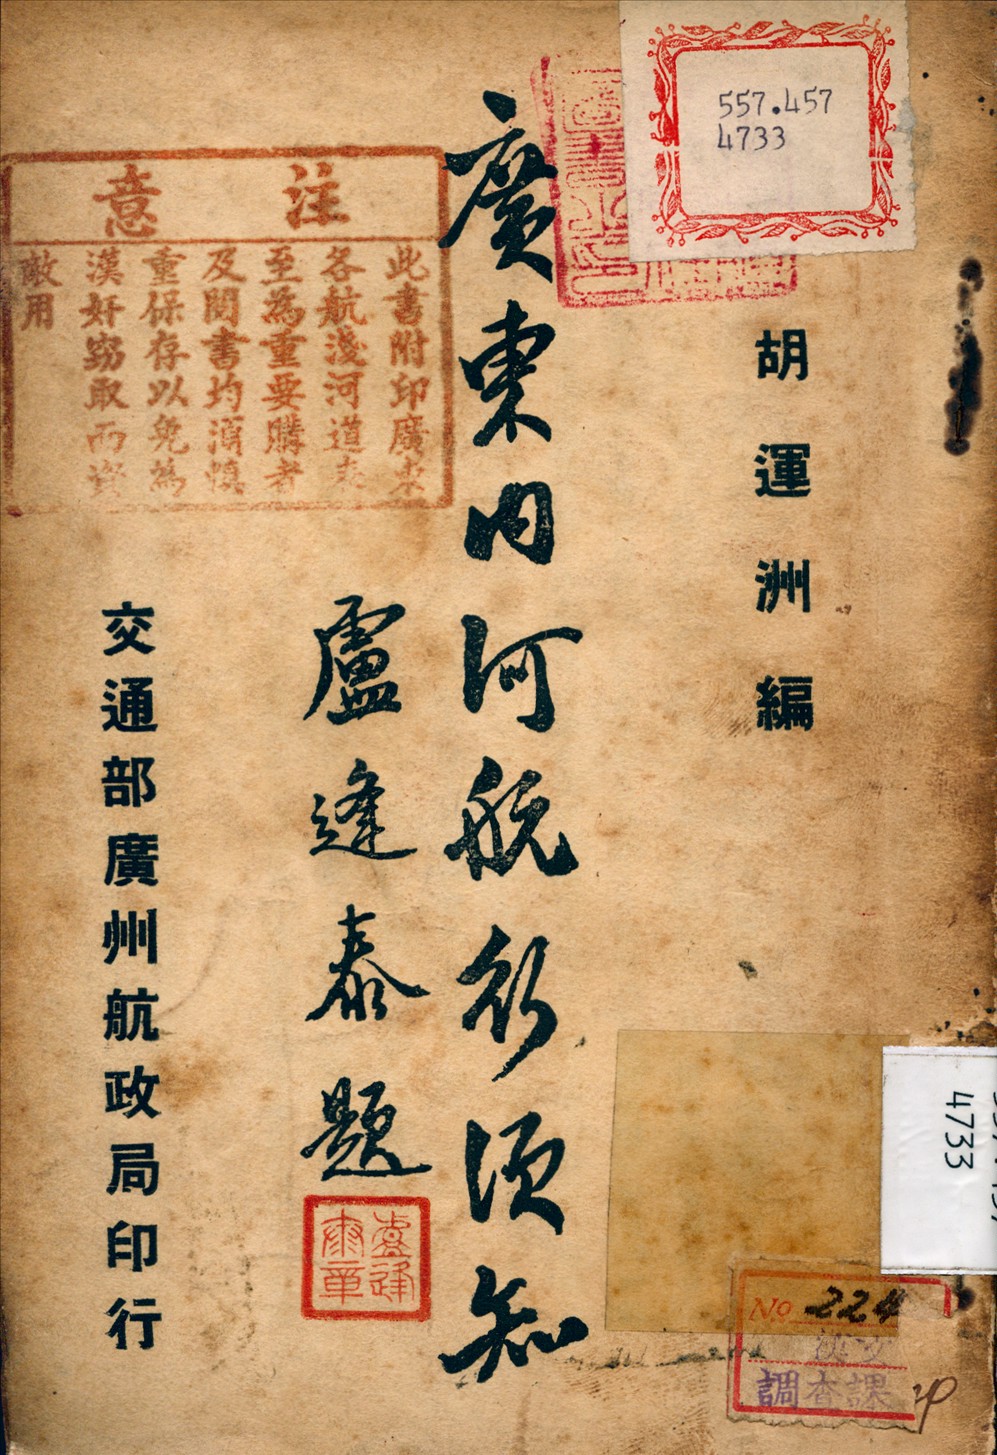 557.457
4733
胡運洲編
廣東内河航行須知
盧逢泰題
盧逢泰章
注意
此書附印廣東
各航淺河道表
至為重要購者
及閱書均須慎
重保存以免為
漢奸竊取而資
敵用
交通部廣州航政局印行
4733
No 224
調查課